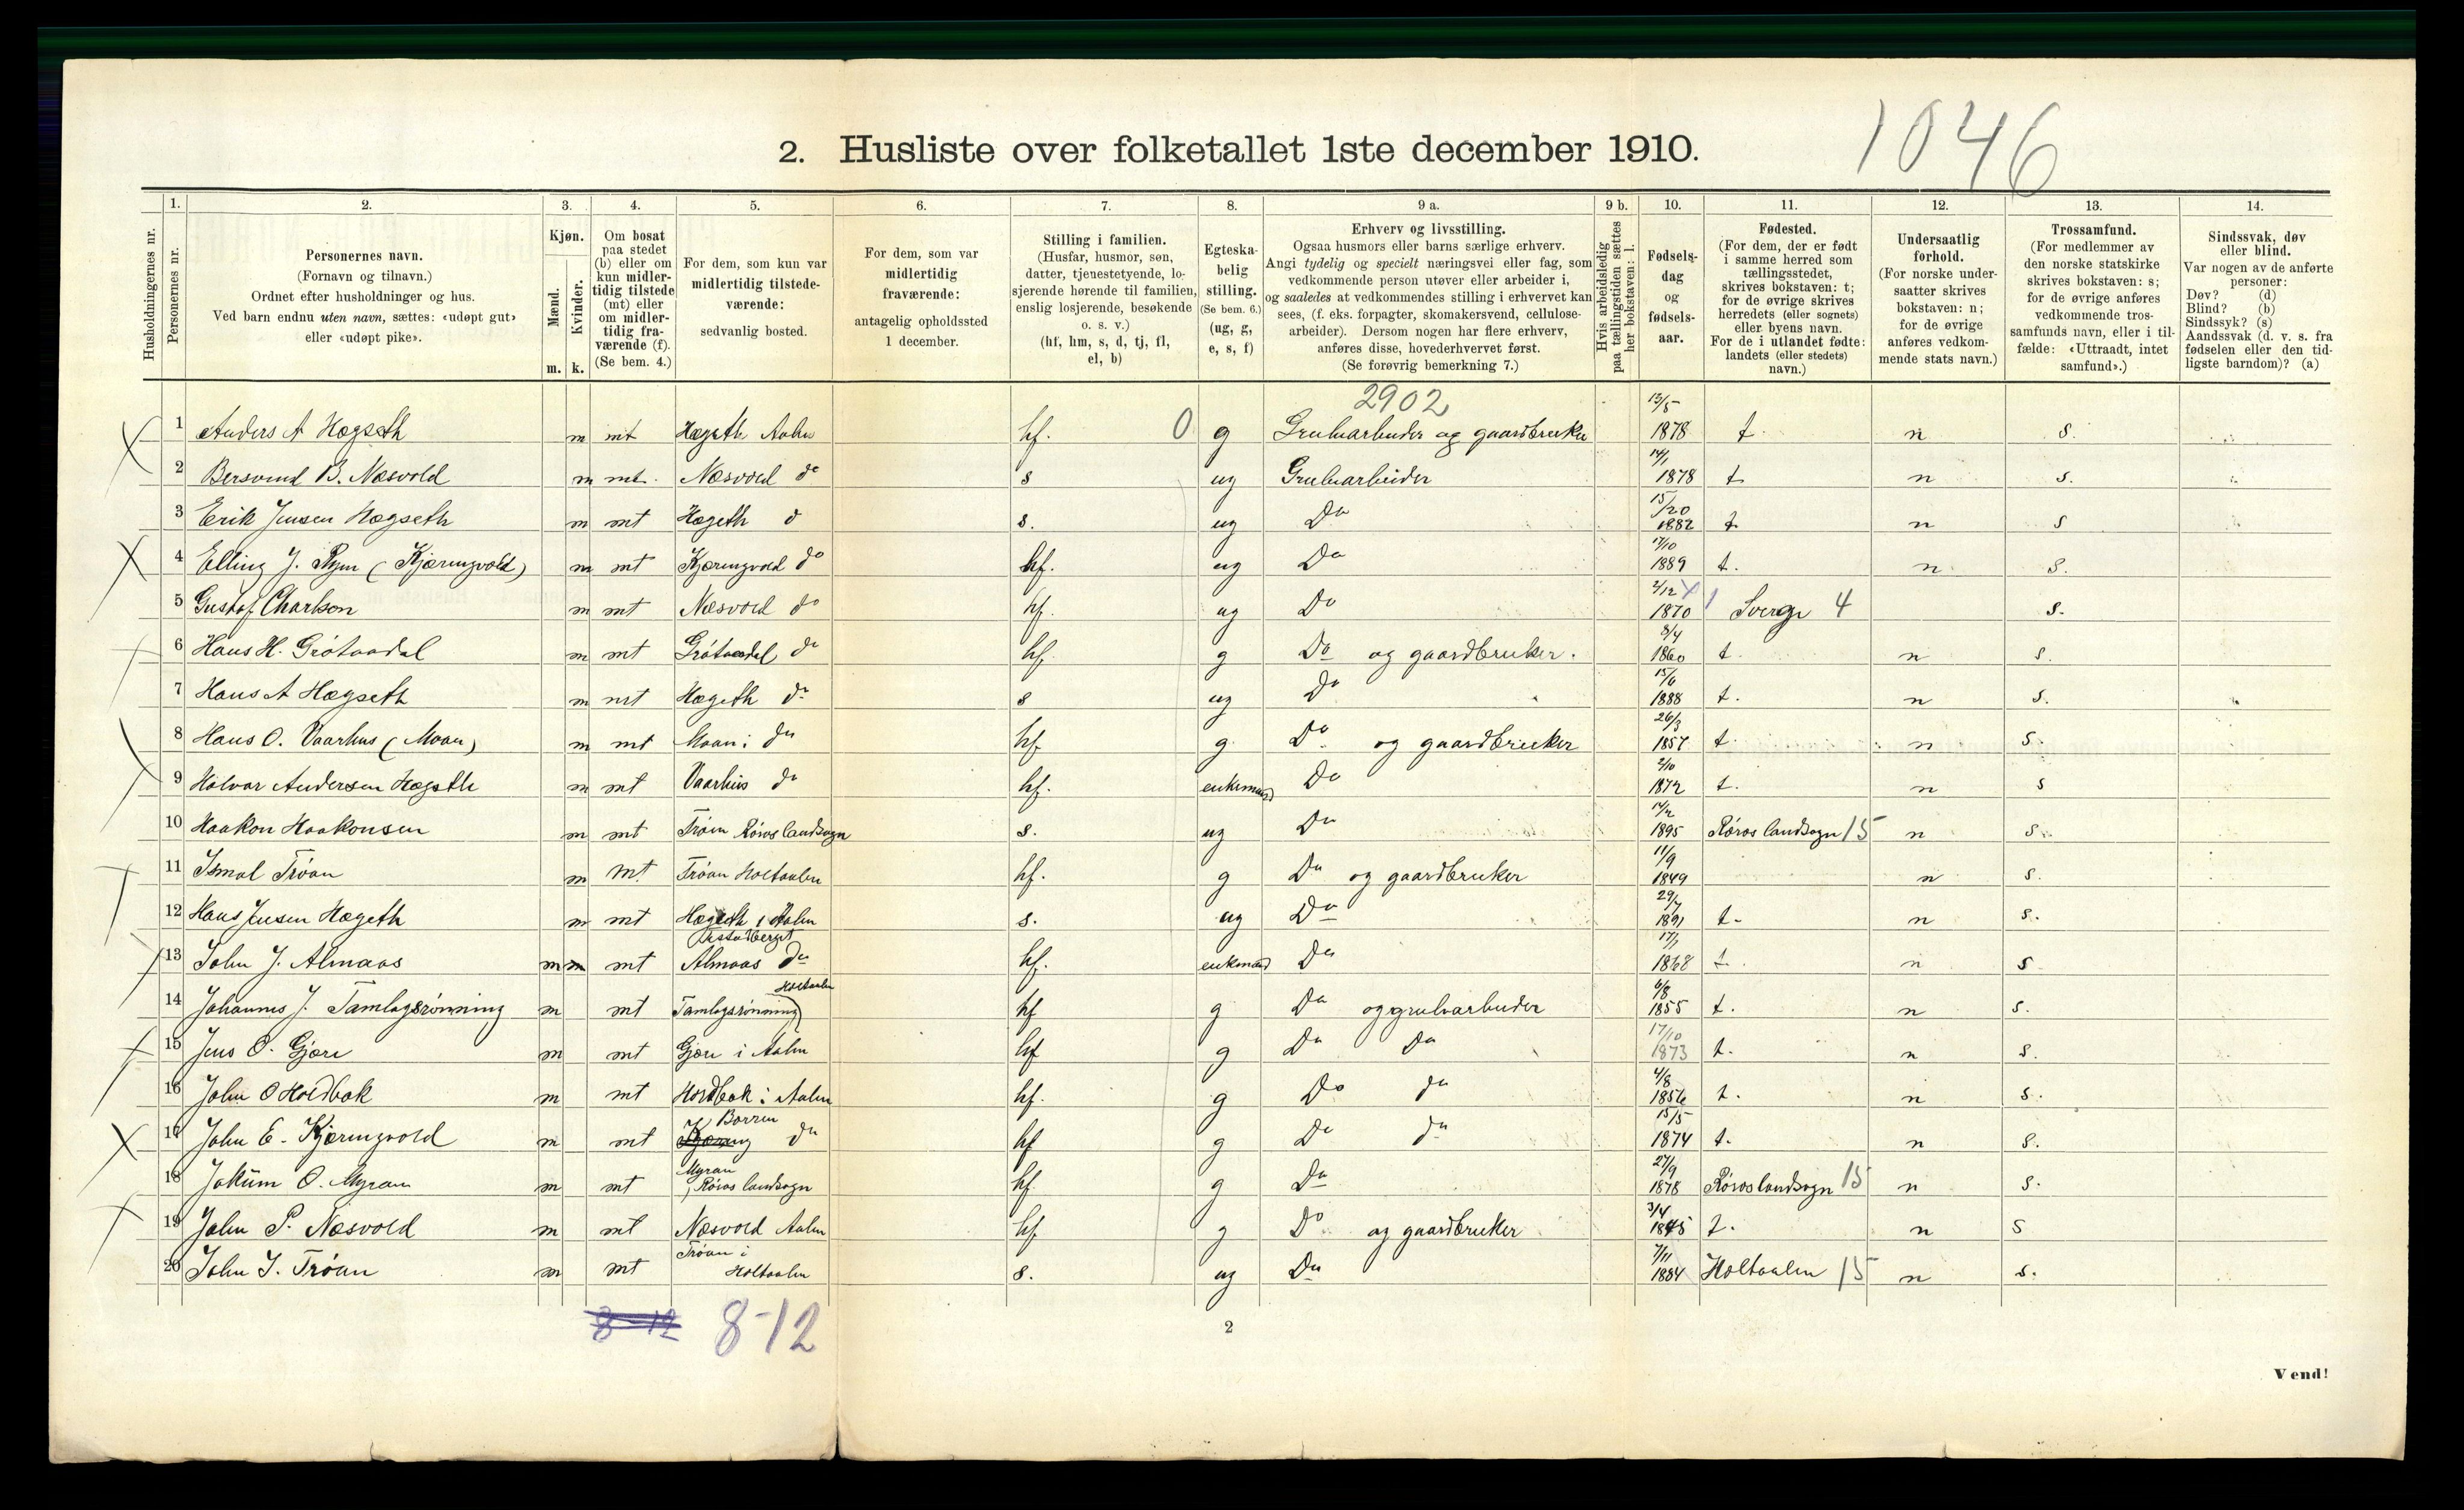 1046
2. Husliste over folketallet 1ste december 1910.
Husholdningernes nr.
1. Personernes nr.
2. Personernes navn.
(Fornavn og tilnavn.)
Ordnet efter husholdninger og hus.
Ved barn endnu uten navn, sættes: «udøpt gut»
eller «udøpt pike».
3. Kjøn.
Mænd. Kvinder.
m. k.
4. Om bosat
paa stedet
(b) eller om
kun midler-
tidig tilstede
(mt) eller
om midler-
tidig fra-
værende (f).
(Se bem. 4.)
5. For dem, som kun var
midlertidig tilstede-
værende:
sedvanlig bosted.
6. For dem, som var
midlertidig
fraværende:
antagelig opholdssted
1 december.
7. Stilling i familien.
(Husfar, husmor, søn,
datter, tjenestetyende, lo-
sjerende hørende til familien,
enslig losjerende, besøkende
o. s. v.)
(hf, hm, s, d, tj, fl,
el, b)
8. Egteska-
belig
stilling.
(Se bem. 6.)
(ug, g,
e, s, f)
9 a. Erhverv og livsstilling.
Ogsaa husmors eller barns særlige erhverv.
Angi tydelig og specielt næringsvei eller fag, som
vedkommende person utøver eller arbeider i,
og saaledes at vedkommendes stilling i erhvervet kan
sees, (f. eks. forpagter, skomakersvend, cellulose-
arbeider). Dersom nogen har flere erhverv,
anføres disse, hovederhvervet først.
(Se forøvrig bemerkning 7.)
9 b. Hvis arbeidsledig
paa tællingstiden sættes
her bokstaven: l.
10. Fødsels-
dag
og
fødsels-
aar.
11. Fødested.
(For dem, der er født
i samme herred som
tællingsstedet,
skrives bokstaven: t;
for de øvrige skrives
herredets (eller sognets)
eller byens navn.
For de i utlandet fødte:
landets (eller stedets)
navn.)
12. Undersaatlig
forhold.
(For norske under-
saatter skrives
bokstaven: n;
for de øvrige
anføres vedkom-
mende stats navn.)
13. Trossamfund.
(For medlemmer av
den norske statskirke
skrives bokstaven: s;
for de øvrige anføres
vedkommende tros-
samfunds navn, eller i til-
fælde: «Uttraadt, intet
samfund».)
14. Sindssvak, døv
eller blind.
Var nogen av de anførte
personer:
Døv? (d)
Blind? (b)
Sindssyk? (s)
Aandssvak (d. v. s. fra
fødselen eller den tid-
ligste barndom)? (a)
2902
1 Anders A Hægseth m mt Hægseth Aalen hf. 0 g Grubearbeider og gaardbruker 13/5 1878 t n s.
2 Bersvend B. Næsvold m mt. Næsvold do s ug Grubearbeider 14/1 1878 t n s.
3 Erik Jensen Hægseth m mt Hægseth d s. ug Do 15/20 1882 t n s
4 Elling J. Ryen (Kjæringvold) m mt Kjæringvold do hf. ug Do 17/10 1889 t. n s.
5 Gustaf Charlson m mt Næsvold do hf. ug Do 2/12 1870 Sverge 4 s.
6 Hans H. Grótaadal m mt Grótaadal do hf. g Do og gaardbruker. 8/4 1860 t. n s.
7 Hans A Hægseth m mt Hægseth do s ug Do 15/6 1888 t. n s.
8 Hans O. Vaarhus (Moan) m mt Moan i do hf g Do og gaardbruker 26/3 1857 t. n s.
9 Halvor Andersen Hægseth m mt Vaarhus do hf. enkemand Do 2/10 1872 t. n s
10 Haakon Haakonsen m mt Tróen Róros landsogn s. ug Do 14/2 1895 Róros landsogn 15 n s.
11 Ismal Tróan m mt Tróan Holtaalen hf. g Do og gaardbruker 11/9 1849 n s.
12 Hans Jensen Hægseth m mt Hægseth i Aalen s. ug Do 29/7 1891 t. n s.
13 John J. Almaas m m mt Almaas do hf. enkemand Do 1868 t. n s
14 Johannes J. Tamlagsrónning m mt Tamlagsrónning Holtaalen hf g Do og grubarbeider 6/8 1855 t. n s.
15 Jens O. Gjøre m mt Gjøre i Aalen hf g Do Do 17/10 1873 t. n s.
16 John O Holdbak m mt Holdbak i Aalen hf. g Do do 4/8 1856 t. n s.
17 John E. Kjæringvold m mt Borren do hf g Do do 15/5 1874 t. n s.
18 Jokum O. Myran m mt Myran Róros landsogn hf. g Do 27/9 1878 Róros landsogn 15 n s.
19 John P. Næsvold m mt Næsvold Aalen hf g Do og gaardbruker 3/4 1845 t. n s
20 John I. Tróan m mt Tróan i Holtaalen s. ug Do 7/11 1884 Holtaalen 15 n s.
8-12 8-12
2
Vend!